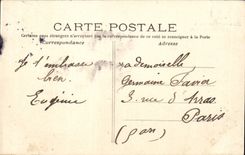 CARTE POSTALE
Certains pays étrangers n'acceptent pas la correspondance de ce côté se renseigner à la Poste
Correspondance
Adresse
Je t'embrasse
bien.
Eugénie
Mademoiselle
Germaine
3. rue d'Arras
Paris